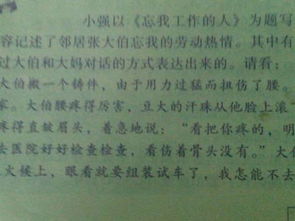 小强以《忘我工作的人》为题写
容记述了邻居张大伯忘我的劳动热情。其中有
过大伯和大妈对话的方式表达出来的。请看：
大伯搬一个铸件，由于用力过猛而扭伤了腰。
家。大伯腰疼得厉害，豆大的汗珠从他脸上滚
疼得直皱眉头，着急地说：“看把你疼的，明
去医院好好检查检查，看伤着骨头没有。”大
火候上，眼看就要组装试车了，我怎能不去